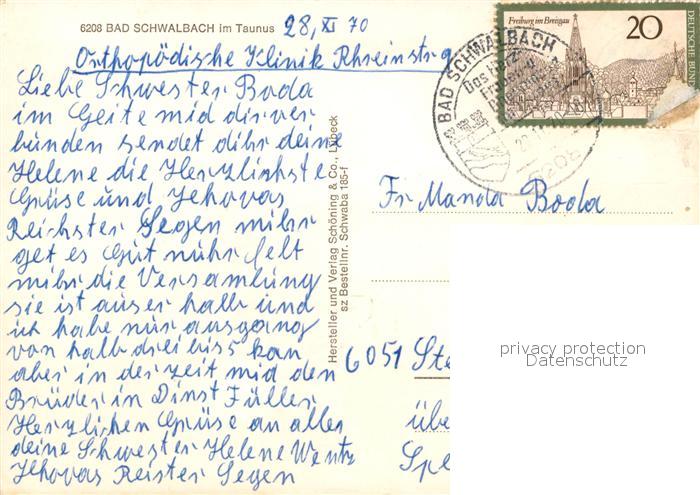 6208 BAD SCHWALBACH im Taunus 28, XI 70
Orthopödische Klinik Rhreinstr 9
Liebe Schwester Boda
im Geite mid dir ver
bunden sendet dihr deine
Helene die Herzlichste
Grüse und Jehovas
Reichster Segen mihr
get es Gut nuhr felt
mihr die Versamlung
sie ist auser halb und
ich habe nur ausgang
von halb drei bis 5 kan
aber in der zeit mid den
Brüder in Dinst Füller
Herzlichen Grüse an alles
deine Schwester Helene Wentz
Jehovas Reister Segen
Hersteller und Verlag Schöning & Co., Lübeck
sz Bestellnr. Schwaba 185-f
Freiburg im Breisgau
20
DEUTSCHE BUND
BAD SCHWALBACH
Das Herz-
6208
Fr Manda Boda
6051 Ste
übe
Spe
privacy protection
Datenschutz